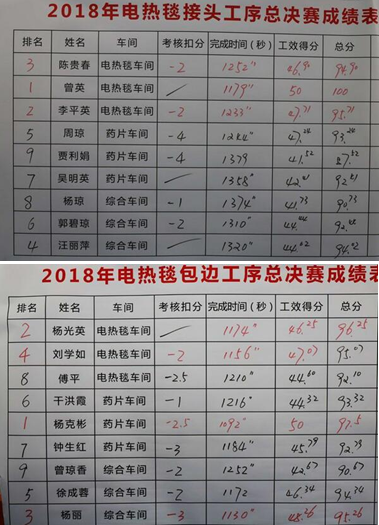 2018年电热毯接头工序总决赛成绩表
排名 姓名 车间 考核扣分 完成时间（秒） 工效得分 总分
3 陈贵春 电热毯车间 -2 1252" 46.90 94.90
1 曾英 电热毯车间 1179" 50 100
2 李平英 电热毯车间 -2 1233" 47.71 95.71
5 周琼 药片车间 -4 1244" 47.24 93.24
9 贾利娟 药片车间 -4 1379 41.52 87.52
7 吴明英 药片车间 1358" 42.41 92.41
8 杨琼 综合车间 -1 1374" 41.73 90.73
6 郭碧琼 综合车间 -2 1310" 44.44 92.44
4 汪丽萍 综合车间 1320" 44.02 94.02
2018年电热毯包边工序总决赛成绩表
排名 姓名 车间 考核扣分 完成时间（秒） 工效得分 总分
2 杨光英 电热毯车间 1174" 46.25 96.25
4 刘学如 电热毯车间 -2 1156" 47.07 95.07
8 傅平 电热毯车间 -2.5 1210" 44.60 92.10
6 干洪霞 药片车间 -1 1216" 44.32 93.32
1 杨克彬 药片车间 -2.5 1092" 50 97.5
7 钟生红 药片车间 -3 1184" 45.79 92.79
9 曾琼香 综合车间 -2 1252" 42.67 90.67
5 徐成蓉 综合车间 -2 1172 46.34 94.34
3 杨丽 综合车间 -3 1130" 48.26 95.26